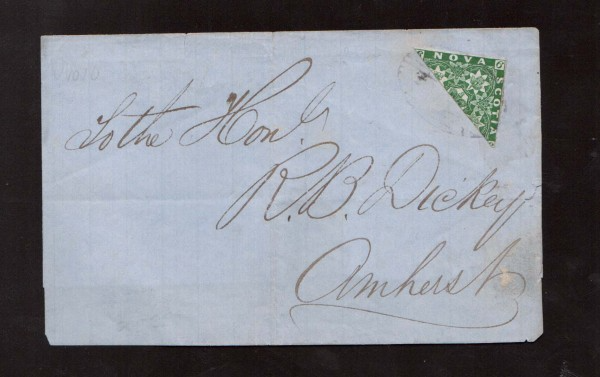 6 NOVA 6
SCOTIA
To the Hon.
R. B. Dickey
Amherst